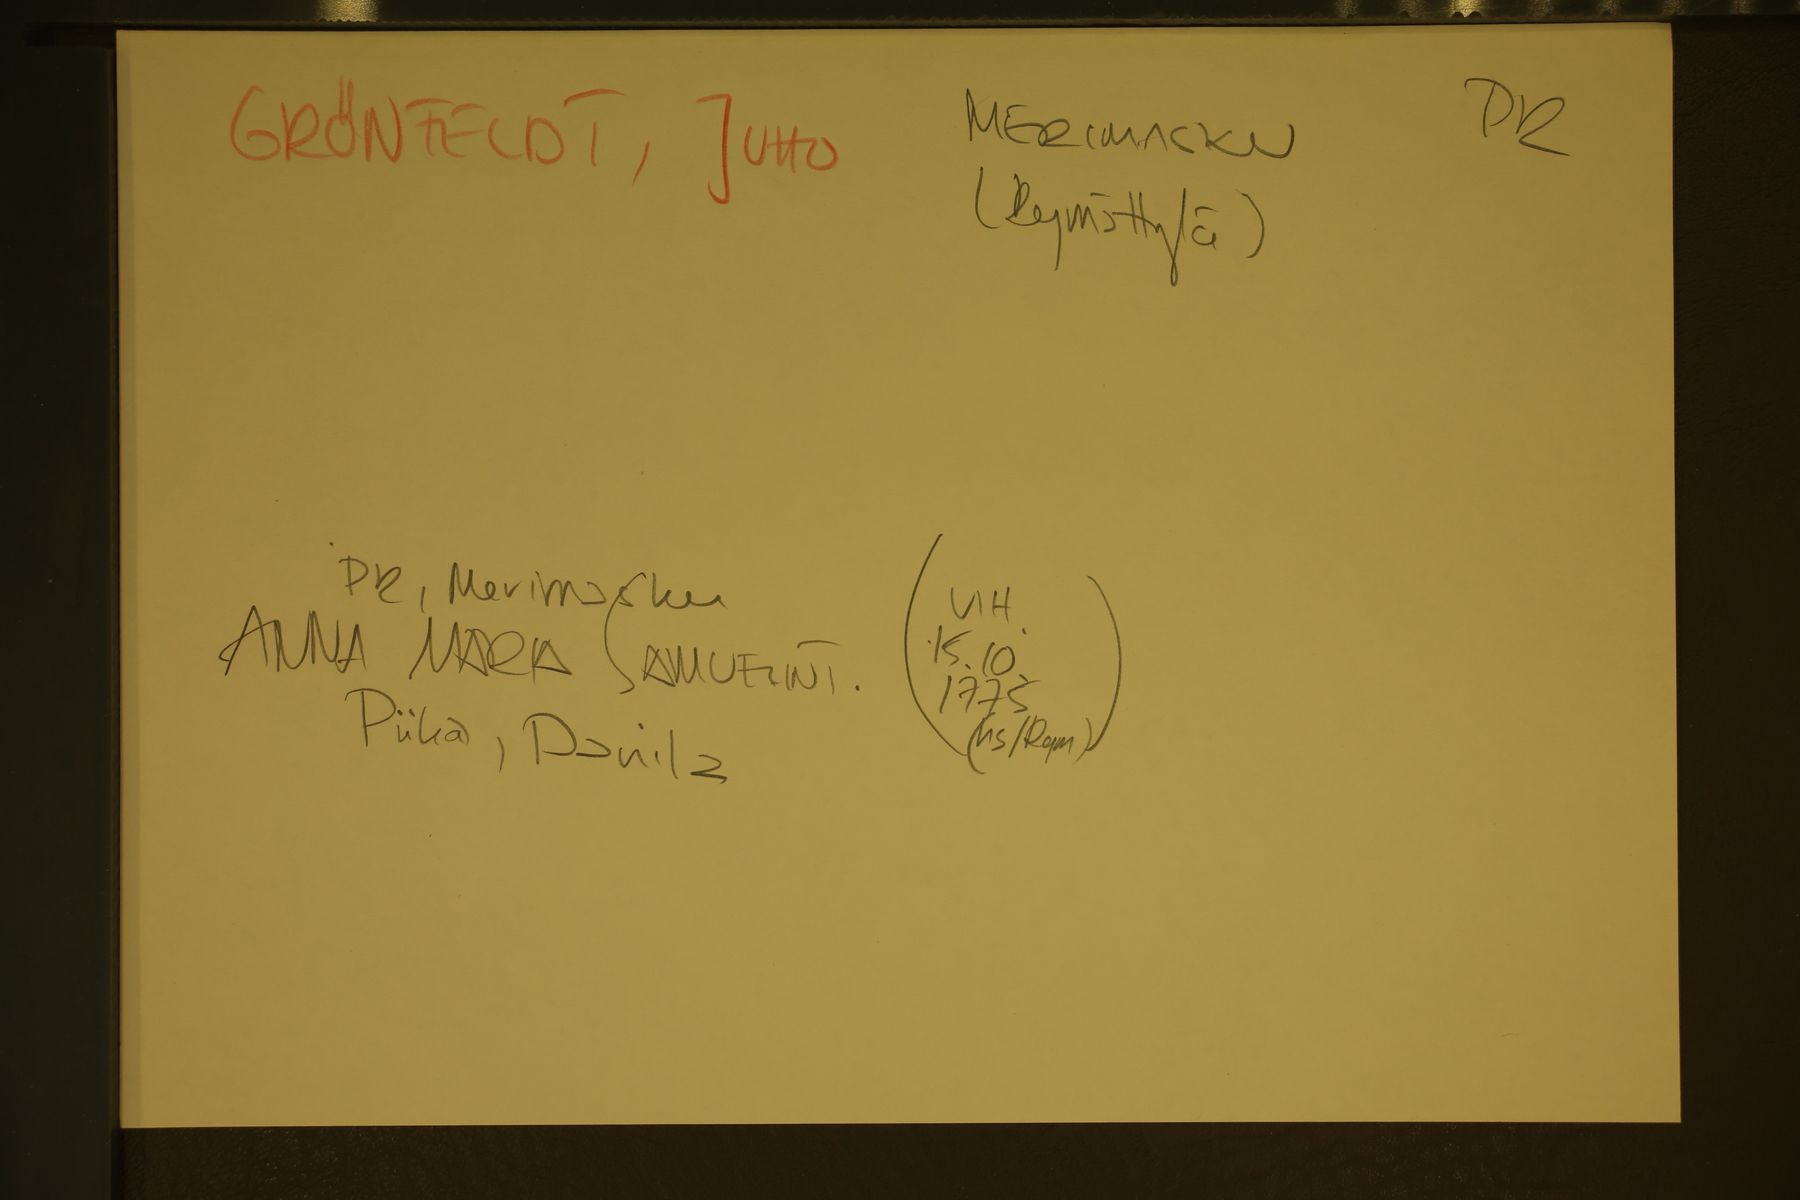 GRÖNFELDT, JUHO MERIMASKU DR
(Rymättylä)
DR, Merimasku
ANNA MARIA SAMUELINT.
Piika, Danila
VIH.
15.10.
1775
(hs/Rym)